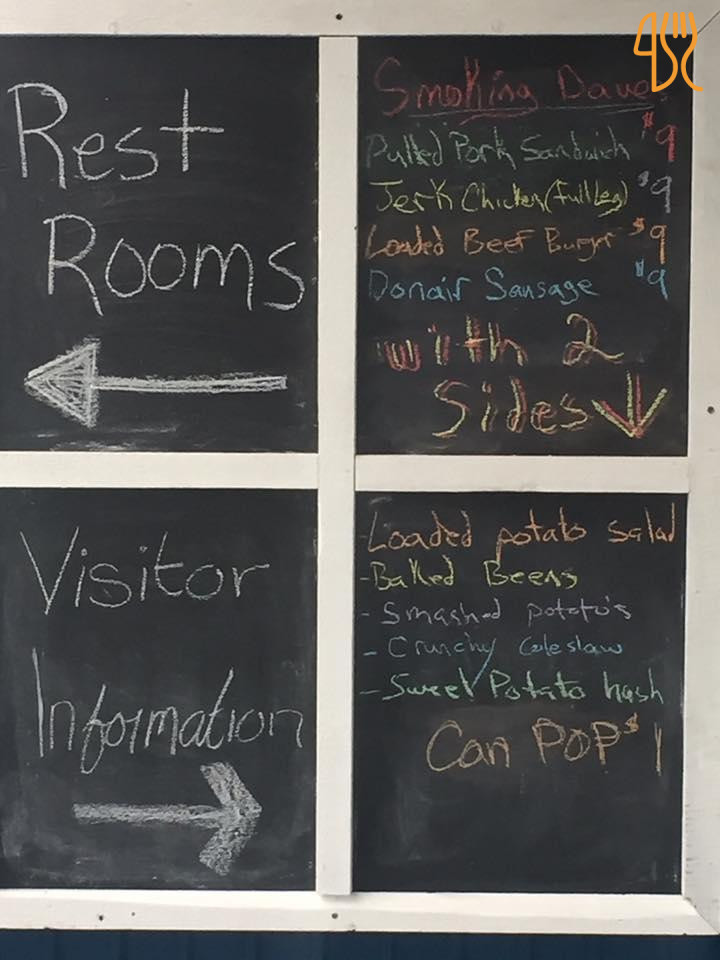 Rest
Rooms
Smoking Dave's
Pulled Pork Sandwich $9
Jerk Chicken (full leg) $9
Loaded Beef Burger $9
Donair Sausage $9
with 2
Sides
Visitor
Information
-Loaded potato salad
-Baked Beens
- Smashed potato's
- Crunchy Coleslaw
- Sweet Potato hash
Can POP $1